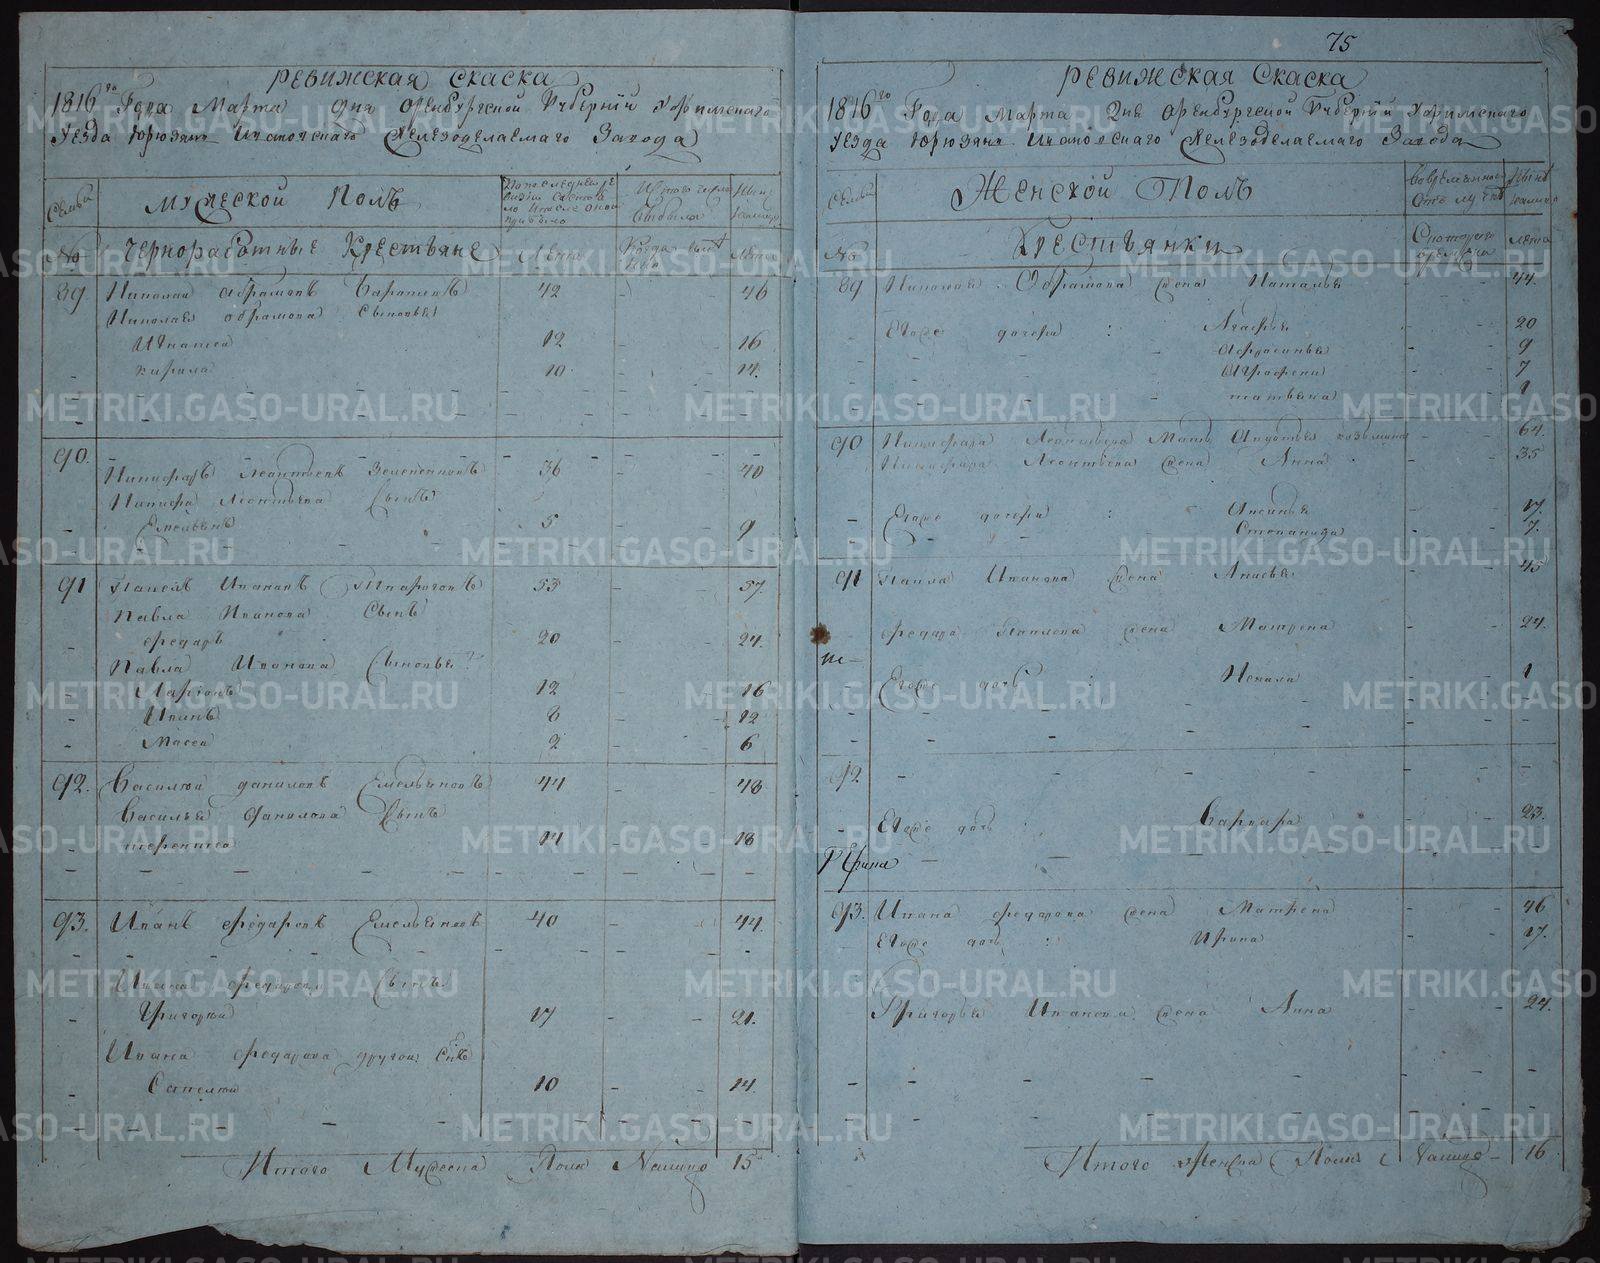 75
РЕВИЖСКАЯ СКАСКА
1816го Года Марта дня Оренбургской Губернiи Уфимскаго
Уезда Юрюзань Ивановскаго Железоделаемаго Завода
Семьи МУЖЕСКОЙ ПОЛЪ
No ЧЕРНОРАБОТНЫЕ КРЕСТЬЯНЕ Лета Лета
89. Николай Абрамовъ 42 - 46
Николая Абрамова Сыновья
Игнатей 12 - 16
Кирила 10 - 14.
90.
Никифоръ Леонтьевъ 36 - 40
Никифора Леонтьева Сынъ
Емельянъ 5 - 9
91 Павелъ Ивановъ 53 - 57
Павла Иванова Сынъ
Федоръ 20 - 24.
Павла Иванова Сыновья
Ларионъ 12 - 16
Иванъ 8 - 12
Масей 2 - 6
92. Василей Даниловъ Емельяновъ 44 - 48
Василья Данилова Сынъ
Терентей 14 - 18
93. Иванъ Федаровъ Емельяновъ 40 - 44
Ивана Федарова Сынъ
Григорей 17 - 21.
Ивана Федарова другой Снъ
Савелей 10 - 14.
Итого Мужеска Пола Налицо 15
РЕВИЖСКАЯ СКАСКА
1816го Года Марта Дня Оренбургской Губернiи Уфимскаго
Уезда Юрюзань Ивановскаго Железоделаемаго Завода
Семьи ЖЕНСКОЙ ПОЛЪ
No КРЕСТЬЯНКИ Лета
89 Николая Абрамова жена Наталья - 44.
Егоже дочери : Агафья - 20
Афросинья - 9
Аграфена - 7
татьяна - 1
90 Никифора Леонтьева Мать Авдотья - 64.
Никифора Леонтьева жена Анна - 35
Егоже дочери : Аксинья - 17.
Степанида - 7.
91 Павла Иванова жена Анисья - 45
Федара Павлова жена Матрена - 24.
Егоже дочь : - 1
92
Егоже дочь : Варвара - 23.
93. Ивана Федарова жена Матрена - 46
Егоже дочь : Ирина - 17.
Григорья Иванова жена Анна - 24.
Итого Женска Пола Налицо - 16
METRIKI.GASO-URAL.RU